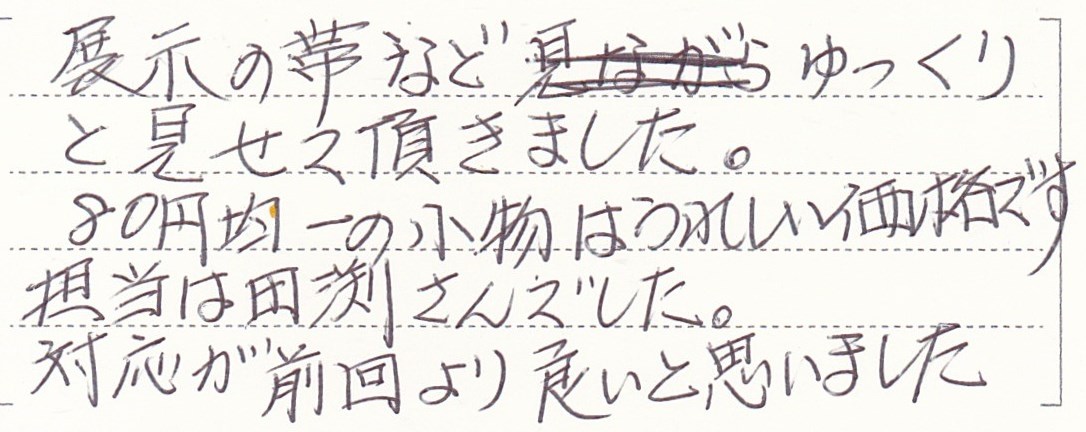 展示の帯など見ながらゆっくり
と見せて頂きました。
80円均一の小物はうれしい価格です
担当は田渕さんでした。
対応が前回より良いと思いました